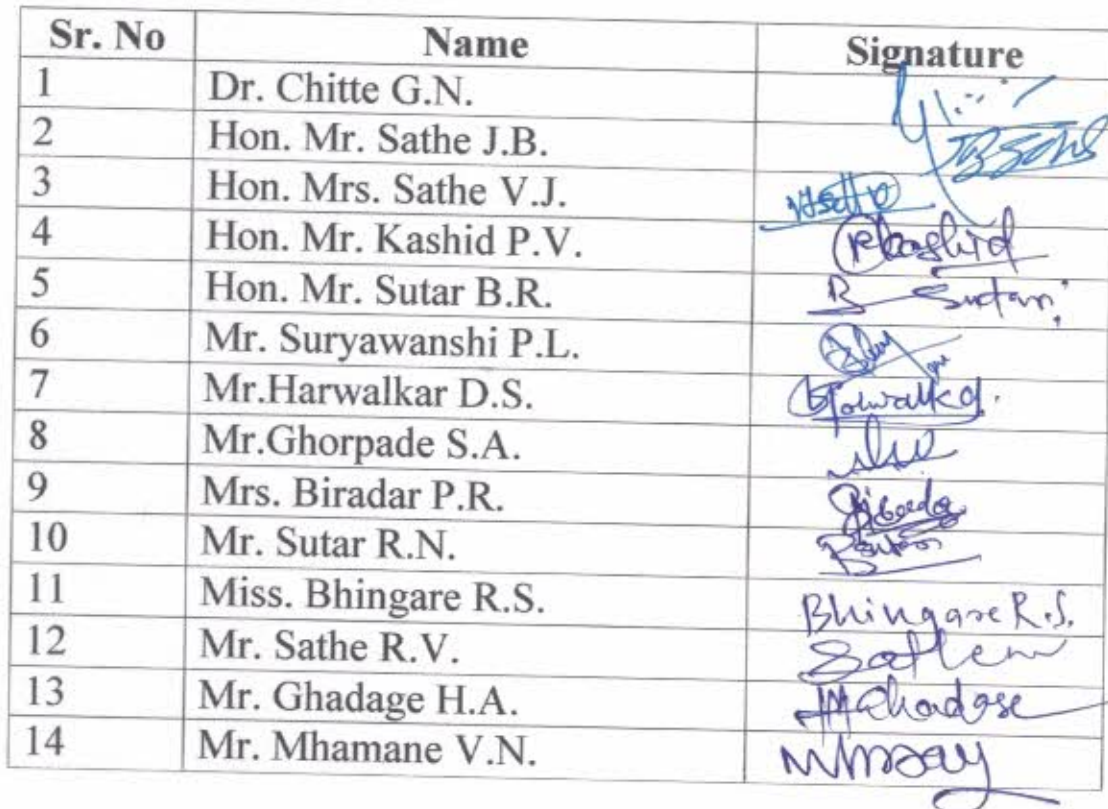 Sr. No Name Signature
1 Dr. Chitte G.N.
2 Hon. Mr. Sathe J.B.
3 Hon. Mrs. Sathe V.J.
4 Hon. Mr. Kashid P.V. Pkashid
5 Hon. Mr. Sutar B.R. B Sutar
6 Mr. Suryawanshi P.L.
7 Mr.Harwalkar D.S.
8 Mr.Ghorpade S.A.
9 Mrs. Biradar P.R.
10 Mr. Sutar R.N.
11 Miss. Bhingare R.S. Bhingare R.S.
12 Mr. Sathe R.V.
13 Mr. Ghadage H.A.
14 Mr. Mhamane V.N.